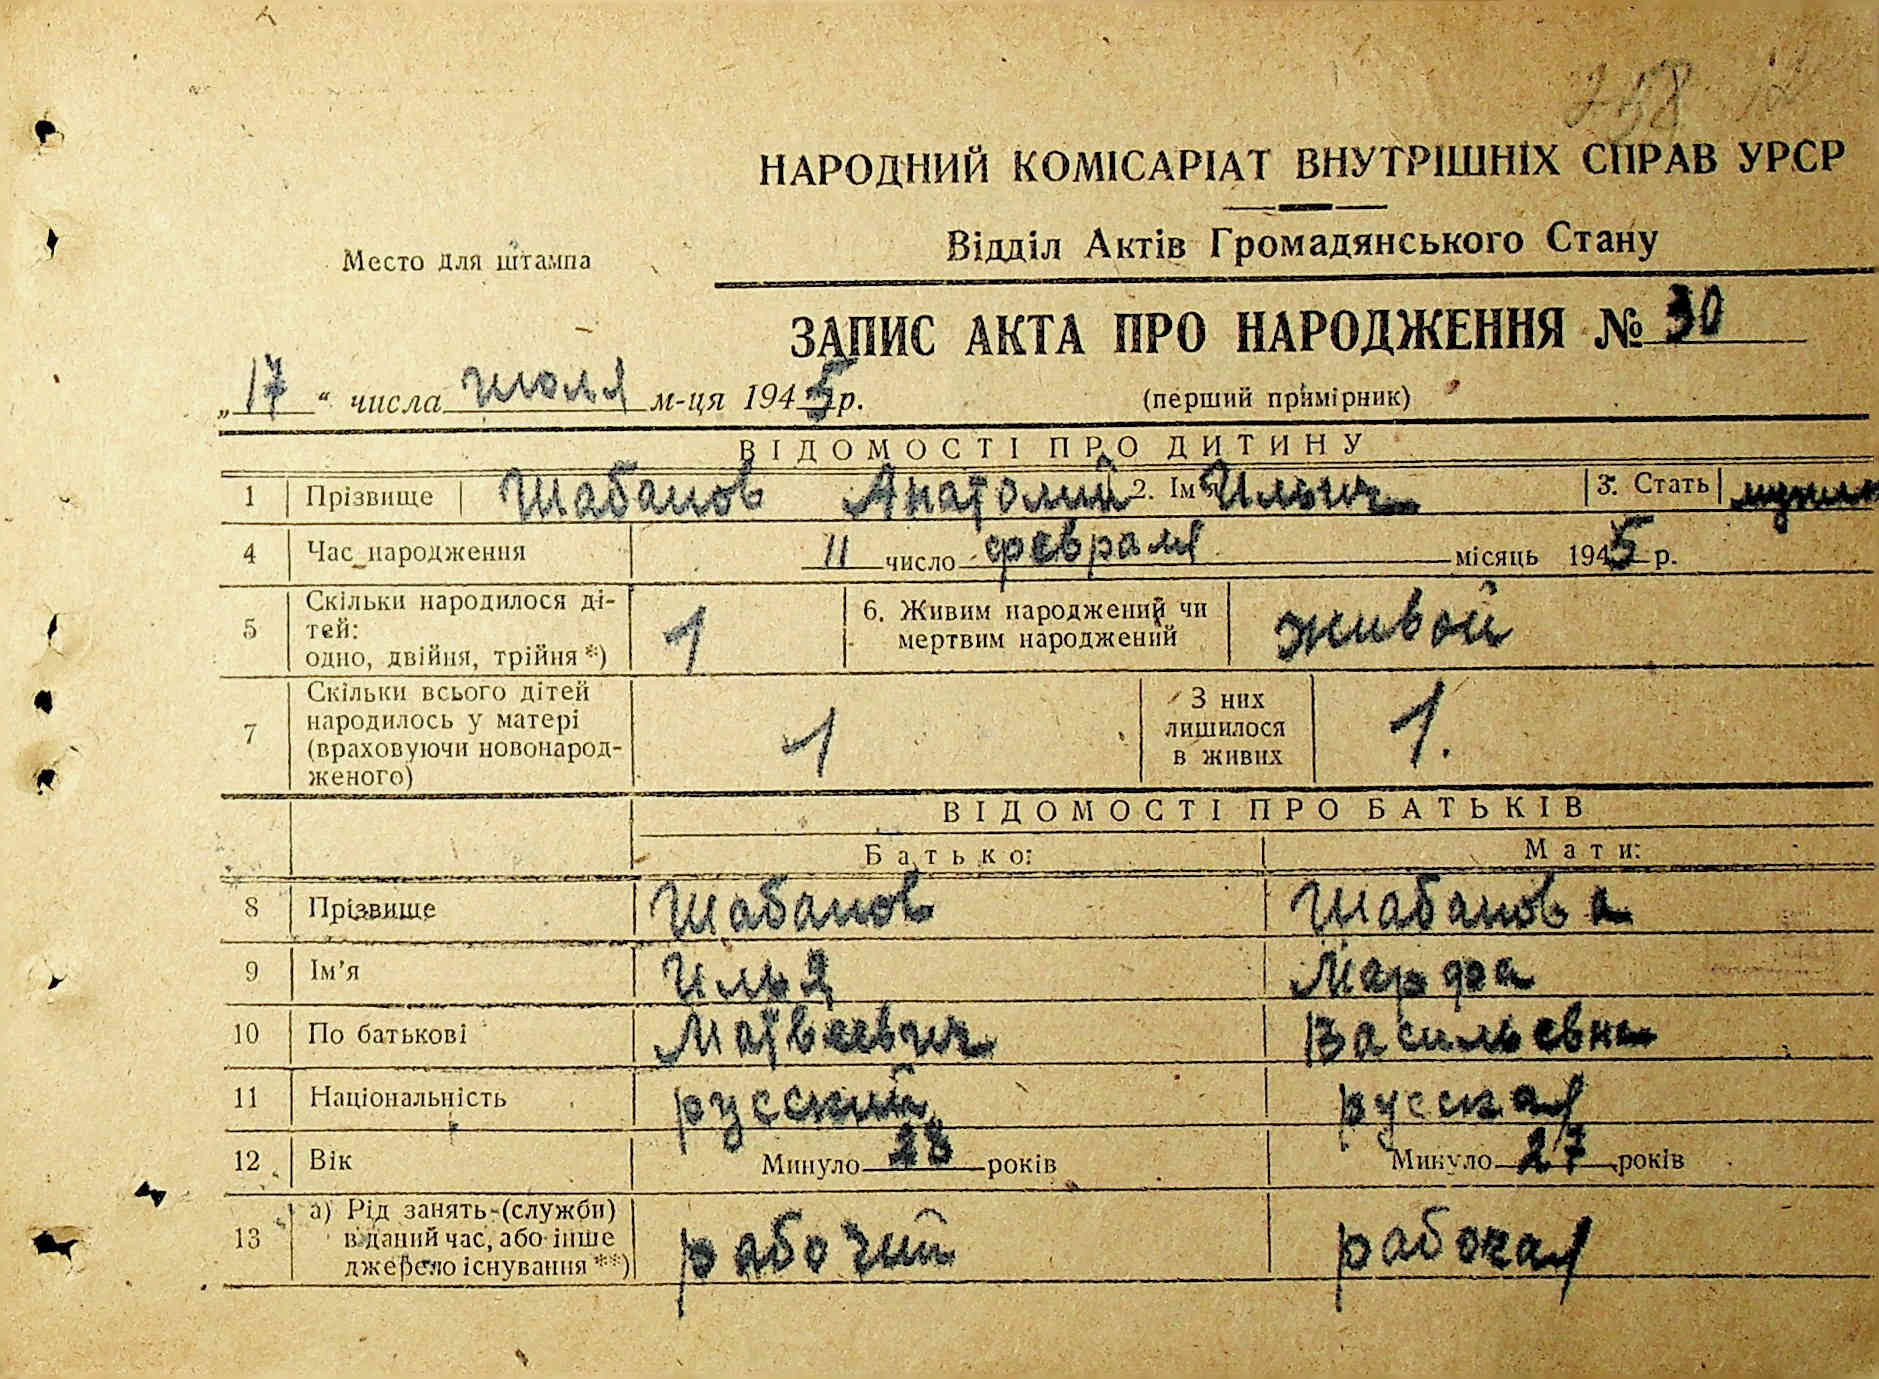 258 12
НАРОДНИЙ КОМІСАРІАТ ВНУТРІШНІХ СПРАВ УРСР
Відділ Актів Громадянського Стану
Место для штампа
ЗАПИС АКТА ПРО НАРОДЖЕННЯ № 30
„17“ числа июля м-ця 1945 р. (перший примірник)
ВІДОМОСТІ ПРО ДИТИНУ
1 Прізвище Шабанов Анатолий 2. Ім'я Ильич 3. Стать
4 Час народження 11 число февраля місяць 1945 р.
5 Скільки народилося ді-
тей:
одно, двійня, трійня*) 1 6. Живим народжений чи
мертвим народжений живой
7 Скільки всього дітей
народилось у матері
(враховуючи новонарод-
женого) 1 З них
лишилося
в живих 1.
ВІДОМОСТІ ПРО БАТЬКІВ
Батько: Мати:
8 Прізвище Шабанов Шабанова
9 Ім'я Илья Марфа
10 По батькові Матвеевич Васильевна
11 Національність русский русская
12 Вік Минуло 28 років Минуло 27 років
13 а) Рід занять (служби)
в даний час, або інше
джерело існування**) рабочий рабочая